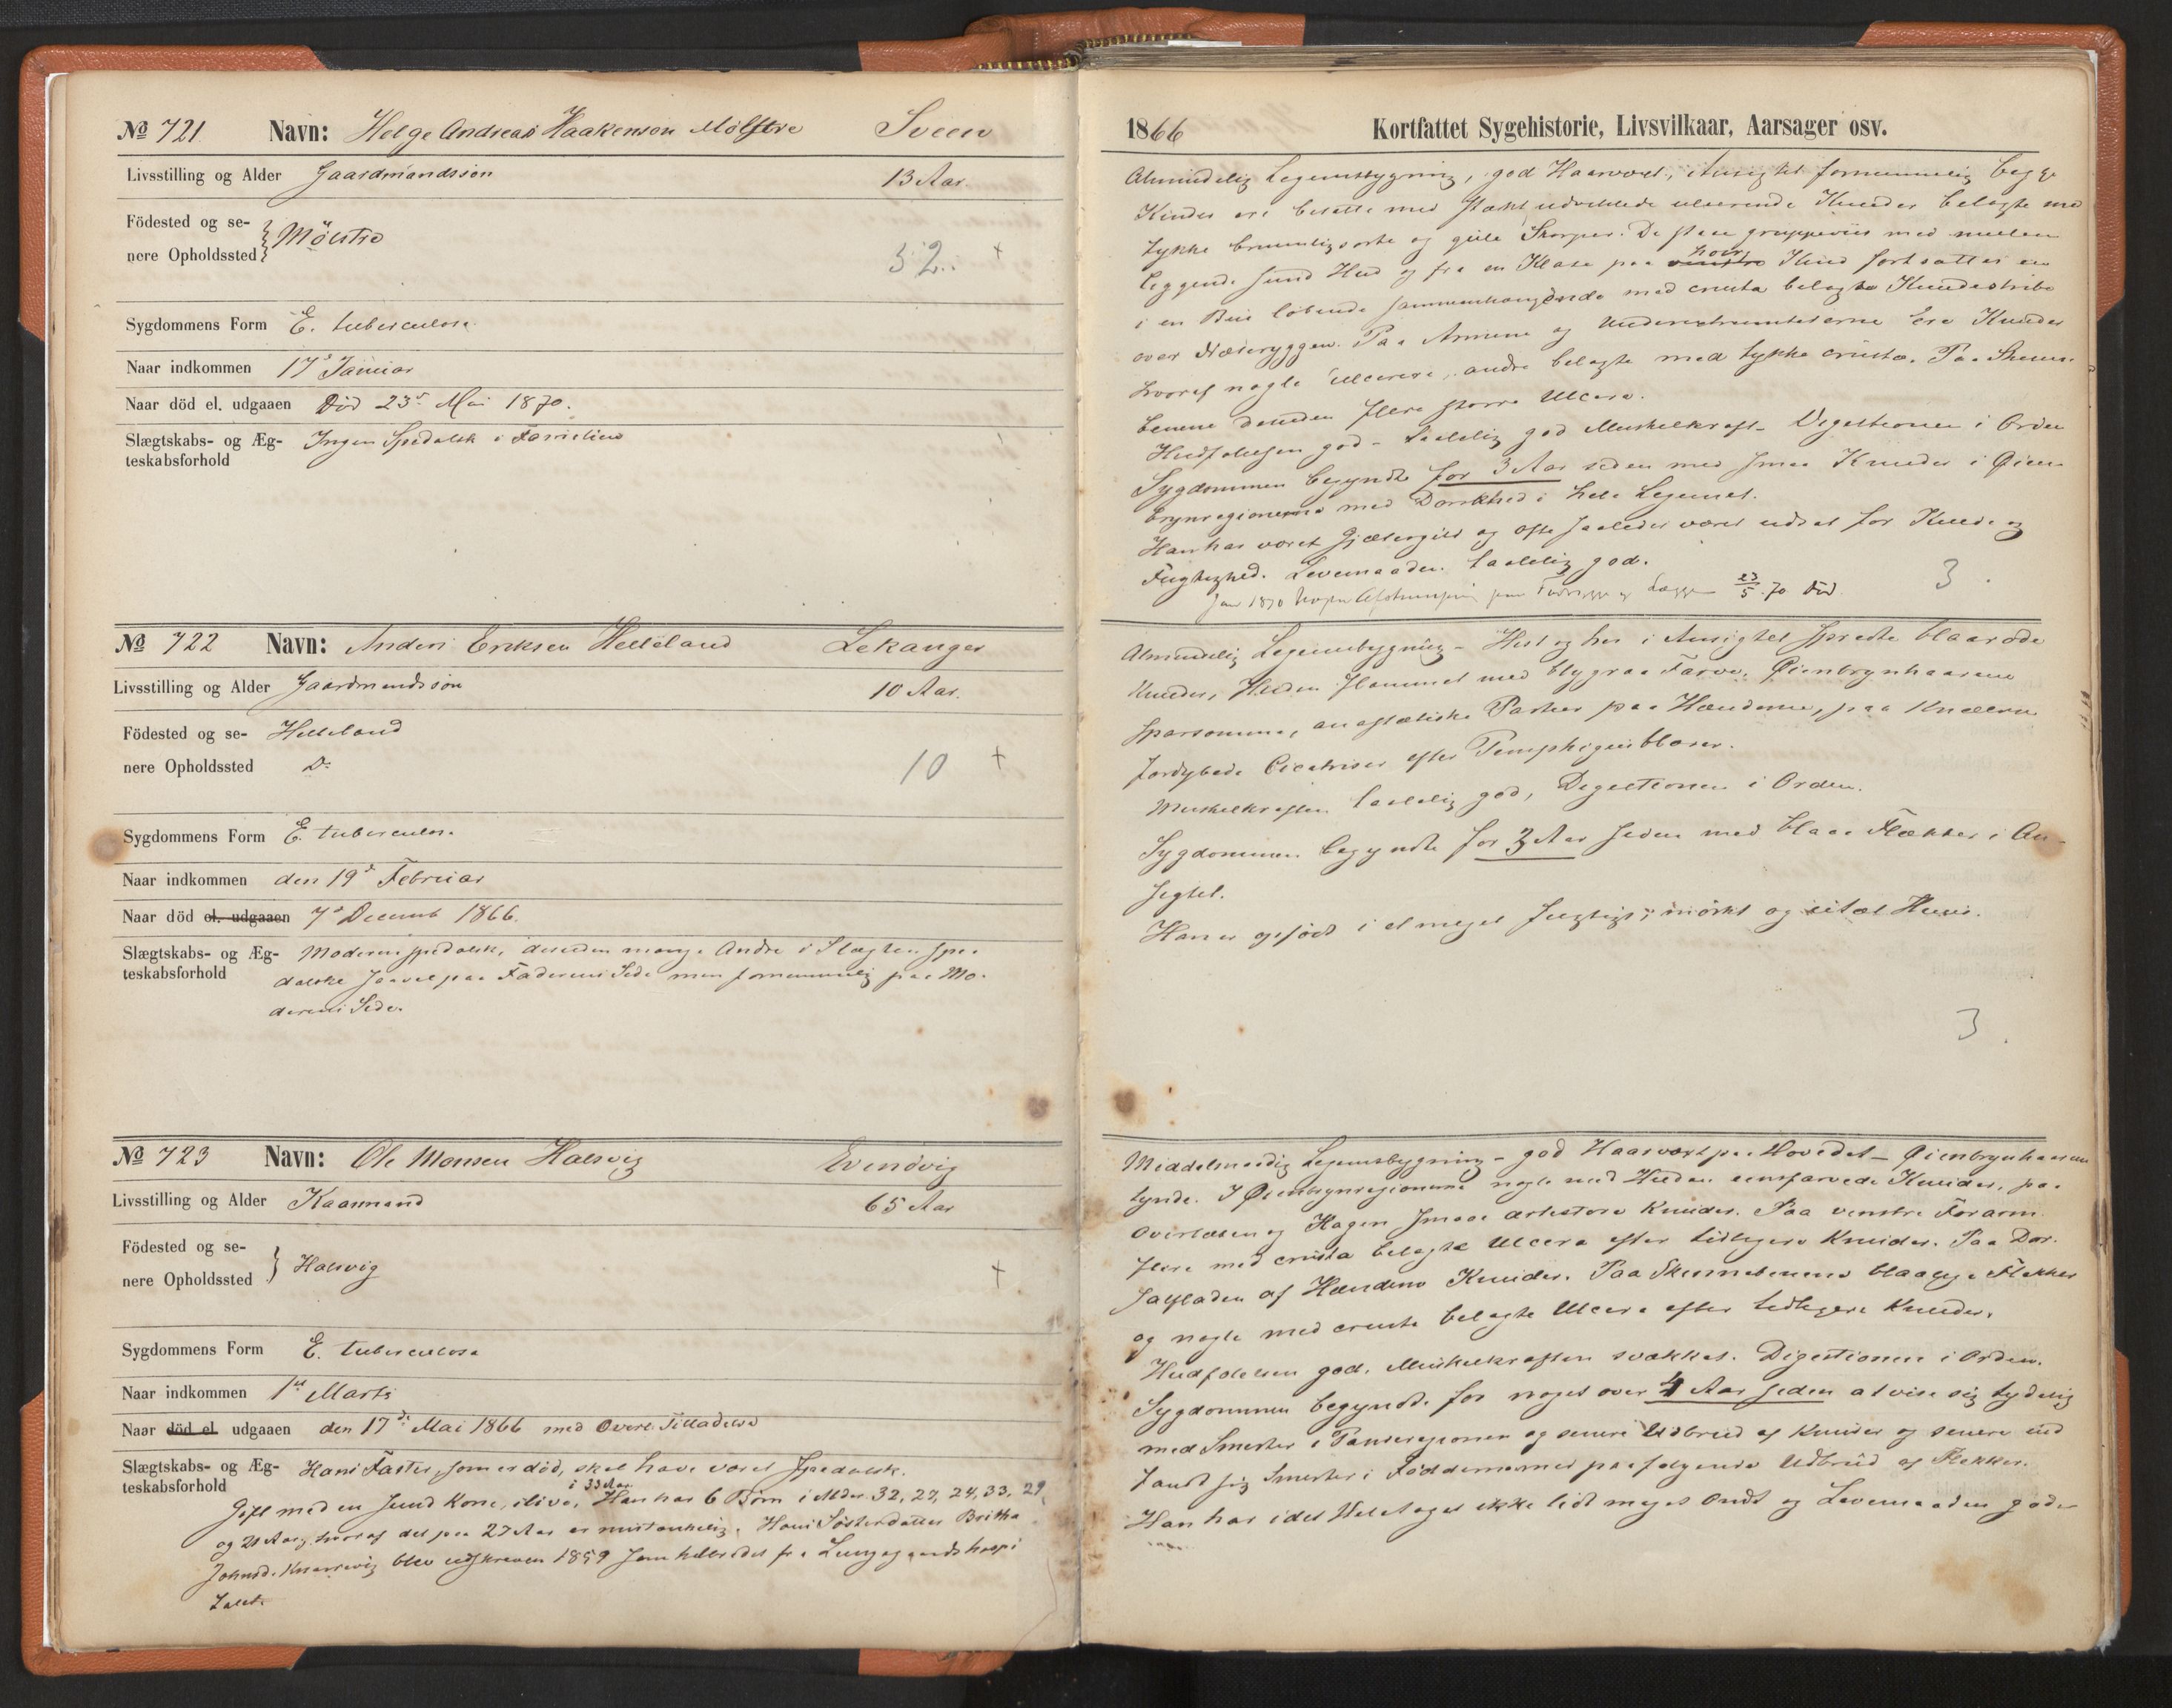 № 721. Navn: Helge Andreas Haakenson Mölstre Sveen
Livsstilling og Alder Gaardmandssön 13 Aar.
Födested og se-
nere Opholdssted } Mölstre
52. +
Sygdommens Form E. tuberculosa
Naar indkommen 17d Januar
Naar död el. udgaaen Död 23d Mai 1870.
Slægtskabs- og Æg-
teskabsforhold Ingen Spedalsk i Familien
№ 722 Navn: Anders Eriksen Helleland Lekanger
Livsstilling og Alder Gaardmandssön 10 Aar.
Födested og se- Helleland
nere Opholdssted Do
10 +
Sygdommens Form E. tuberculosa
Naar indkommen den 19d Februar
Naar död el. udgaaen 7d Decemb 1866.
Slægtskabs- og Æg- Moderen spedalsk, desuden mange Andre i Slægten spe-
teskabsforhold dalske saavel paa Faderens Side men fornemmelig paa Mo-
derens Side.
№ 723 Navn: Ole Monsen Halsvig Evindvig
Livsstilling og Alder Kaarmand 65 Aar
Födested og se-
nere Opholdssted } Halsvig
+
Sygdommens Form E. tuberculosa
Naar indkommen 1st Marts
Naar död el. udgaaen den 17de Mai 1866 med Overl. Tilladelse
Slægtskabs- og Æg- Hans Faster, som er död, skal have været spedalsk.
teskabsforhold
Gift med en sund Kone, ilive, i 33 Aar. Han har 6 Börn i Alder 32, 27, 24, 33, 29,
og 21 Aar, hvoraf det paa 27 Aar er mistænkelig. Hans Sösterdatter Britha
Johnsd. blev udskreven 1859 som helbredet fra Lungegaardshospi
talet.
1866 Kortfattet Sygehistorie, Livsvilkaar, Aarsager osv.
Almindelig Legemsbygning, god Haarvæxt, i Ansigtet fornemmelig begge
Kinder ere besatte med stærkt udviklede ulcererende Knuder belagte med
tykke brunligsorte og gule Skorper. De staae gruppeviis med mellem
liggende sund Hud og fra en Klase paa venstre höire Kind fortsætter en
i en Bue löbende sammenhængende med crusta belagte Knudestribe
over Næseryggen. Paa Armene og Underextremiteterne ere Knuder
hvoraf nogle ulcerere, andre belagte med tykke crustæ. Paa Skinne-
benene desuden flere större Ulcera.
Hudfölelsen god - taalelig god Muskelkraft - Digestionen i Orden
Sygdommen begyndte for 3 Aar siden med smaa Knuder i Öien-
brynregionerne med Dorskhed i hele Legemet.
Han har været Gjætergut og ofte saaledes været udsat for Kulde og
Fugtighed. Levemaaden taalelig god.
Jan 1870 23/5 70 död. 3
Almindelig Legemsbygning - Hist og her i Ansigtet spredte blaaröde
Knuder, Huden flammet med blygraa Farve. Öienbrynhaarene
sparsomme, anæsthetiske Partier paa Hænderne, paa Knæerne
fordybede Cicatriser efter Pemphigusblærer.
Muskelkraften taalelig god, Digestionen i Orden.
Sygdommen begyndte for 3 Aar siden med blaae Flækker i An-
sigtet.
Han er opföd i et meget fugtigt, mörkt og usælt Huus.
3
Middelmaadig Legemsbygning - god Haarvæxt paa Hovedet - Öienbrynhaarene
tynde. I Öienbrynregionerne nogle med Huden eensfarvede Knuder, paa
Overlæben og Hagen smaae ærtestore Knuder. Paa venstre Forarm
flere med crusta belagte Ulcera efter tidligere Knuder. Paa Dor-
salfladen af Hænderne Knuder. Paa Skinnebenene blaalige Flekker
og nogle med crusta belagte Ulcera efter tidligere Knuder.
Hudfölelsen god. Muskelkraften svækket. Digestionen i Orden.
Sygdommen begyndte for noget over 4 Aar siden at vise sig tydelig
med Smerter i Panderegionen og senere Udbrud af Knuder og senere ind
fandt sig Smerter i Födderne med paafölgende Udbrud af Flekker.
Han har i det Hele taget ikke lidt meget Ondt og Levemaaden god